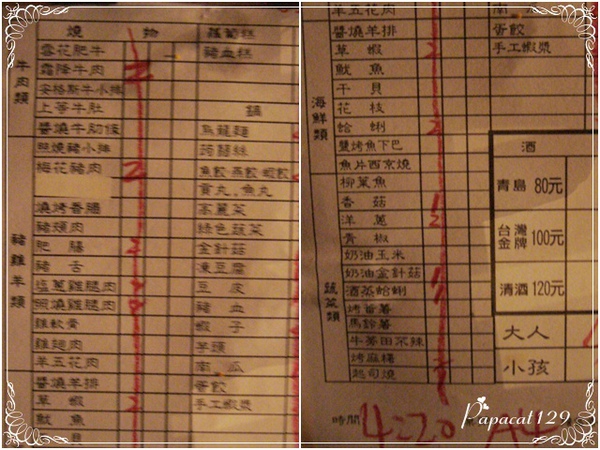 燒 物
蘿蔔糕
雪花肥牛
豬血糕
霜降牛肉 2
安格斯牛小排
上等牛肚
鍋
牛肉類
醬燒牛肋條
烏龍麵
照燒豬小排
蒟蒻絲
梅花豬肉 2
魚餃 燕餃 蝦餃
貢丸、魚丸
燒烤香腸
高麗菜
豬頰肉
綠色蔬菜
肥腸
金針菇
豬舌
凍豆腐
豬雞羊類
塩蔥雞腿肉
豆皮
照燒雞腿肉
豬血
雞軟骨
蝦子
雞翅肉
芋頭
羊五花肉
南瓜
醬燒羊排
蛋餃
草蝦 2
手工蝦漿
魷魚
貝
羊五花肉
南瓜
醬燒羊排
蛋餃
草蝦 2
手工蝦漿
魷魚
干貝
花枝
海鮮類
蛤蜊 2
鹽烤魚下巴
魚片西京燒
柳葉魚
香菇
洋蔥
青椒
奶油玉米
奶油金針菇
酒蒸蛤蜊
烤蕃薯
馬鈴薯
牛蒡甜不辣
烤麻糬
起司燒
蔬菜類
酒
青島 80元
台灣金牌 100元
清酒 120元
大人
小孩
時間 4:20
A4
Papacat129